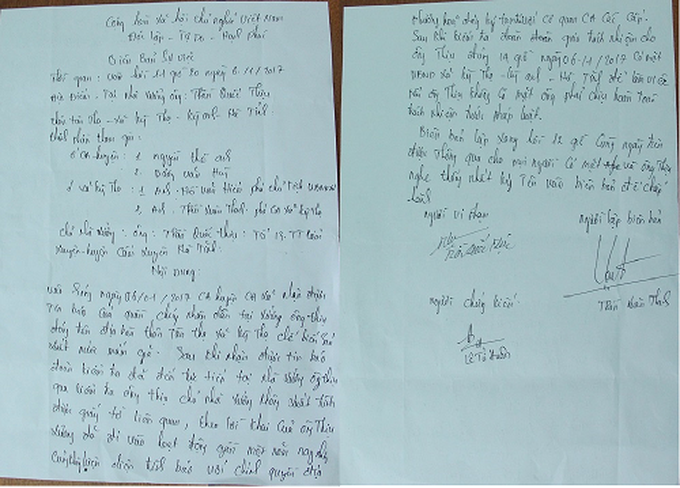 Cộng hòa xã hội chủ nghĩa Việt Nam
Độc lập - Tự do - Hạnh Phúc
Biên Bản Sự việc
Thời gian: vào hồi 11 giờ 20 ngày 6/11/2017
Địa điểm: Tại nhà xưởng ông: Trần Quốc Thiệu
thôn tân Thọ - xã kỳ Thọ - kỳ anh - Hà Tĩnh
thành phần tham gia:
CA huyện: 1 nguyễn thế anh
2 văn Huy
xã kỳ Thọ: 1 Anh. văn Hiên phó chủ tịch UBND xã
2 Anh. Trần Xuân phó CA xã kỳ thọ
chủ nhà xưởng: ông: Trần Quốc Thiệu: Tổ 19. TT
xuyên - huyện Cẩm xuyên Hà Tĩnh.
Nội dung:
vào sáng ngày 06/11/2017 CA huyện CA xã nhận được
Tin báo của quần chúng nhân dân tại xưởng ông thiệu
đóng trên địa bàn thôn Tân thọ xã kỳ Thọ chế biến sản
xuất nước mắm giả. Sau khi nhận được tin báo
đoàn kiểm tra đã đến trực tiếp tại nhà xưởng ông thiệu
qua kiểm tra ông thiệu chủ nhà xưởng không xuất trình
được giấy tờ liên quan, theo lời khai của ông Thiệu
xưởng đã đi vào hoạt động gần một năm nay
trình báo với chính quyền địa
phương hoặc đăng ký cơ quan CA các Cấp.
Sau khi kiểm tra đoàn giao trách nhiệm cho
ông Thiệu đúng 14 giờ ngày 06.11/2017 Có mặt
UBND xã kỳ Thọ - kỳ anh - Hà Tĩnh để làm việc
nếu ông Thiệu không có mặt ông phải chịu hoàn toàn
trách nhiệm trước pháp luật.
Biên bản lập xong hồi 12 giờ Cùng ngày
được thông qua cho mọi người Có mặt và ông Thiệu
nghe thống nhất ký Tên vào biên bản để chấp
hành
người vi phạm
người lập biên bản
Trần Quốc
Trần Xuân
người chứng kiến:
Lê